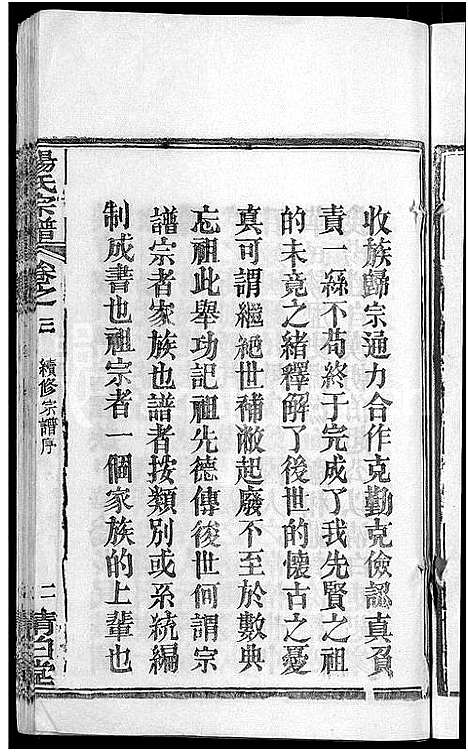 收族歸宗通力合作克勤克儉認真負
責一絲不苟終于完成了我先賢之祖
的未竟之緒釋解了後世的懷古之憂
真可謂繼絕世補敝起廢不至於數典
忘祖此舉功記祖先德傳後世何謂宗
譜宗者家族也譜者按類別或系統編
制成書也祖宗者一個家族的上輩也
楊氏宗譜
卷之三
續修宗譜序
二
清白堂